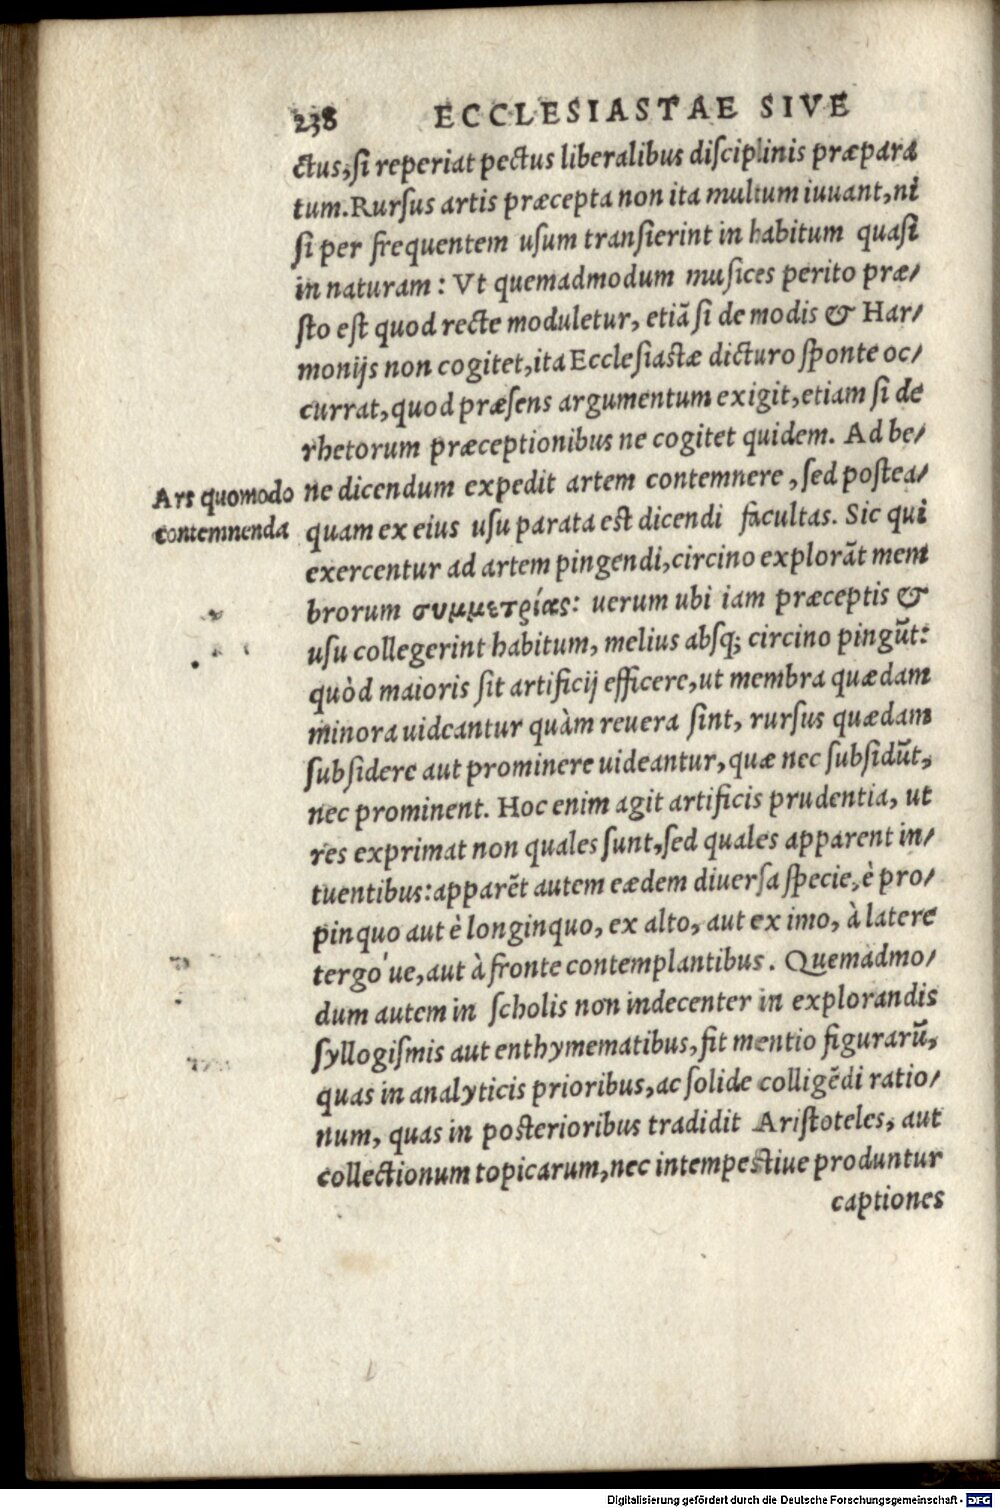 238 ECCLESIASTAE SIVE
ctus, si reperiat pectus liberalibus disciplinis præpara
tum. Rursus artis præcepta non ita multum iuuant, ni
si per frequentem usum transierint in habitum quasi
in naturam: Vt quemadmodum musices perito præ/
sto est quod recte moduletur, etiã si de modis & Har/
monijs non cogitet, ita Ecclesiastæ dicturo sponte oc/
currat, quod præsens argumentum exigit, etiam si de
rhetorum præceptionibus ne cogitet quidem. Ad be/
Ars quomodo
contemnenda
ne dicendum expedit artem contemnere, sed postea/
quam ex eius usu parata est dicendi facultas. Sic qui
exercentur ad artem pingendi, circino explorãt mem
brorum συμμετρίας: uerum ubi iam præceptis &
usu collegerint habitum, melius absq; circino pingũt:
quòd maioris sit artificij efficere, ut membra quædam
minora uideantur quàm reuera sint, rursus quædam
subsidere aut prominere uideantur, quæ nec subsidũt,
nec prominent. Hoc enim agit artificis prudentia, ut
res exprimat non quales sunt, sed quales apparent in/
tuentibus: apparẽt autem eædem diuersa specie, è pro/
pinquo aut è longinquo, ex alto, aut ex imo, à latere
tergo'ue, aut à fronte contemplantibus. Quemadmo/
dum autem in scholis non indecenter in explorandis
syllogismis aut enthymematibus, fit mentio figurarũ,
quas in analyticis prioribus, ac solide colligẽdi ratio/
num, quas in posterioribus tradidit Aristoteles, aut
collectionum topicarum, nec intempestiue produntur
captiones
Digitalisierung gefördert durch die Deutsche Forschungsgemeinschaft - DFG